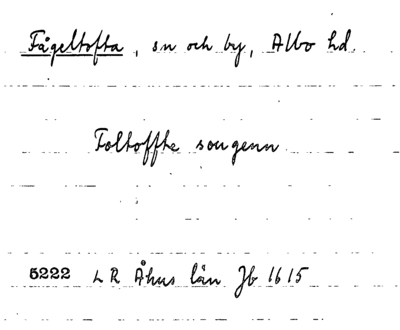 Fågeltofta, sn och by, Albo hd.
Foltoffte songenn
5222 LR Åhus län Jb 1615